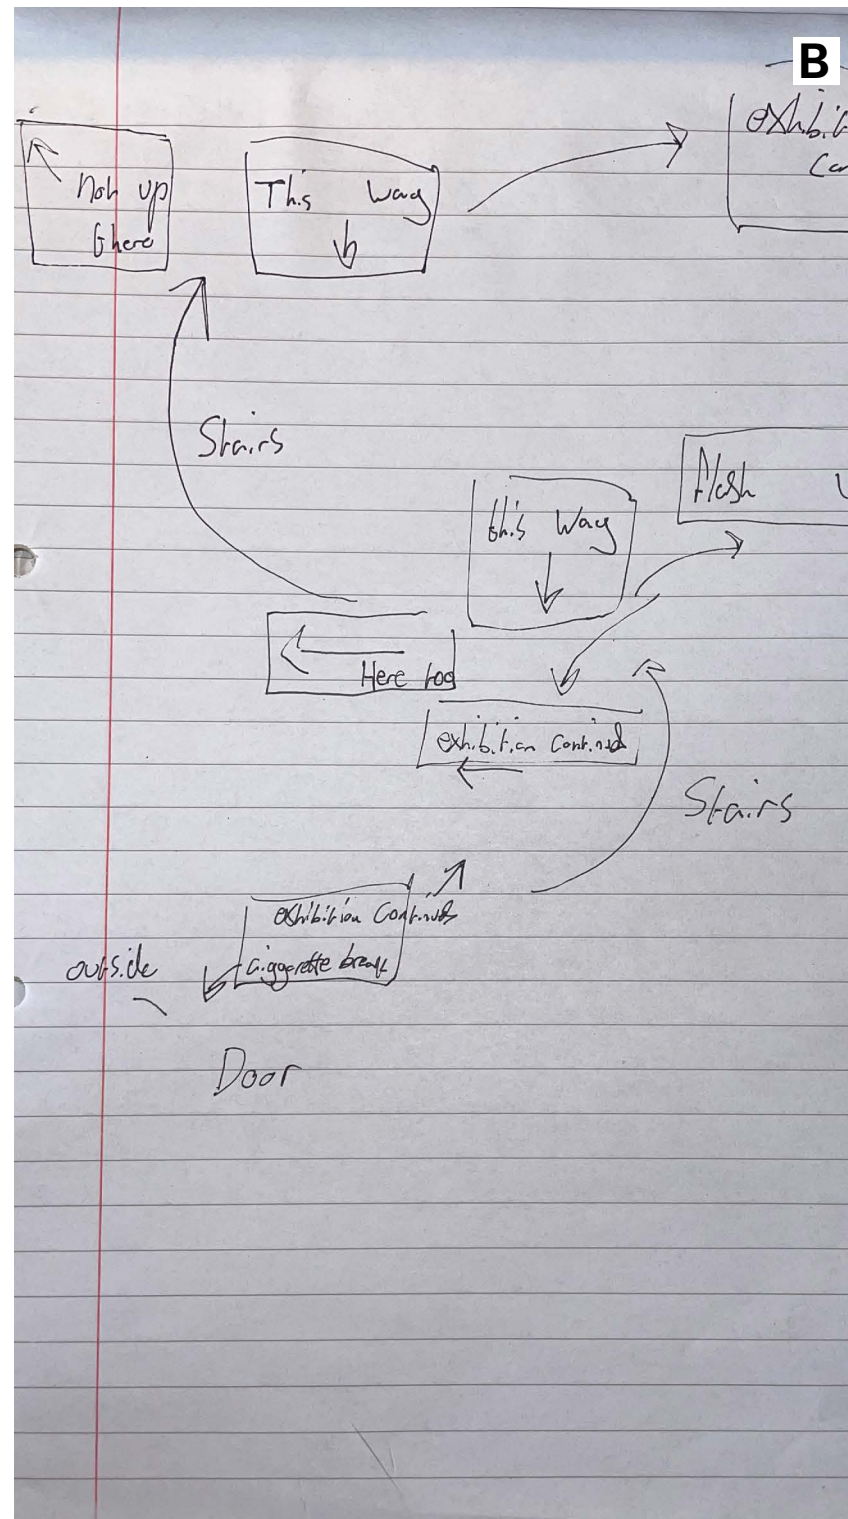 B
exhibit
Not up
there
This Way
Stairs
flash
this Way
Here too
exhibition Continues
Stairs
exhibition Continues
Ciggerette break
outside
Door